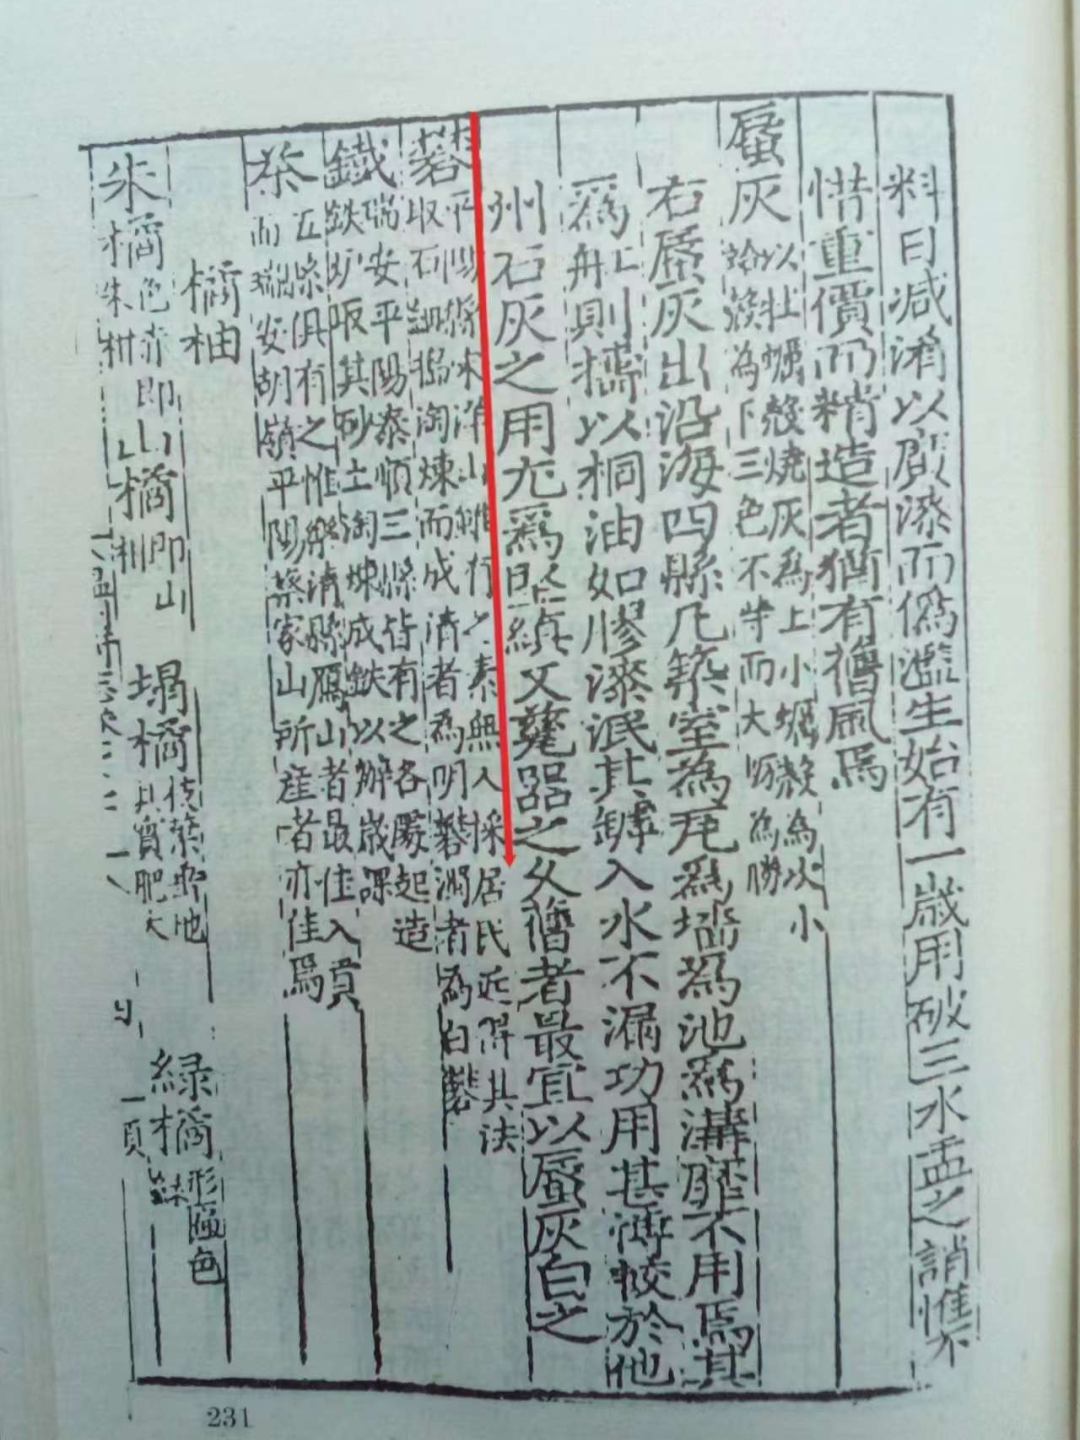 料日減淆以殷漆而偽濫生始有一歲用破三水盂之誚惟不
惜重價而精造者猶有舊風焉
蜃灰
以牡蠣殼燒灰為上小蠣殼為次小
蛤殼為下三色不等而大
為勝
右蜃灰出沿海四縣凡築室為瓦為墻為池為溝靡不用焉其
為工則擣以桐油如膠漆泯其罅入水不漏功用甚溥較於他
州石灰之用尤為堅縝又甕器之久舊者最宜以蜃灰白之
礬
平陽縣宋洋山雖有之素無人採居民近得其法
取石細搗淘煉而成清者為明礬濁者為白礬
鐵
瑞安平陽泰順三縣皆有之各處起造
鉄炉取其砂土淘煉成鉄以辦歲課
茶
五縣俱有之惟樂清縣鴈山者最佳入貢
而瑞安胡嶺平陽蔡家山所產者亦佳焉
橘柚
朱橘
色赤即山
朱柑
山橘
即山
柑
塌橘
其實肥大
綠橘
形匾色
231